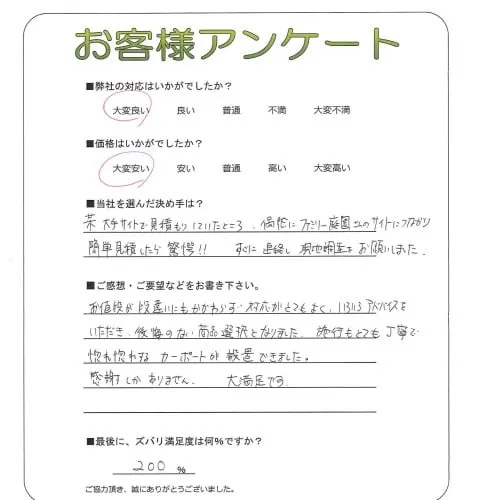 お客様アンケート
■弊社の対応はいかがでしたか？
大変良い 良い 普通 不満 大変不満
■価格はいかがでしたか？
大変安い 安い 普通 高い 大変高い
■当社を選んだ決め手は？
某 大手サイトで見積もりしていたところ、偶然に ファミリー庭園さんのサイトにつながり
簡単見積したら 驚愕!! すぐに 連絡し 現地調査を お願いしました。
■ご感想・ご要望などをお書き下さい。
お値段が 段違いにもかかわらず 対応がとてもよく、いろいろ アドバイスを
いただき、後悔のない 商品選択となりました。施行もとても 丁寧で
惚れ惚れする カーポートが 設置できました。
感謝しかありません。 大満足です
■最後に、ズバリ満足度は何％ですか？
200 ％
ご協力頂き、誠にありがとうございました。